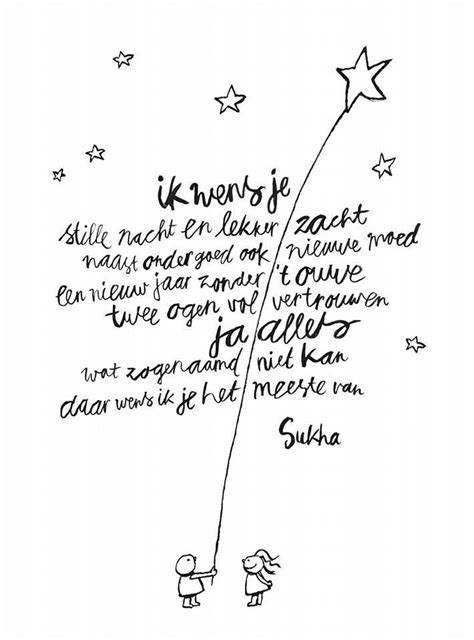 ik wens je
stille nacht en lekker zacht
naast ondergoed ook nieuwe moed
een nieuw jaar zonder 't ouwe
twee ogen vol vertrouwen
ja alles
wat zogenaamd niet kan
daar wens ik je het meeste van
Sukha